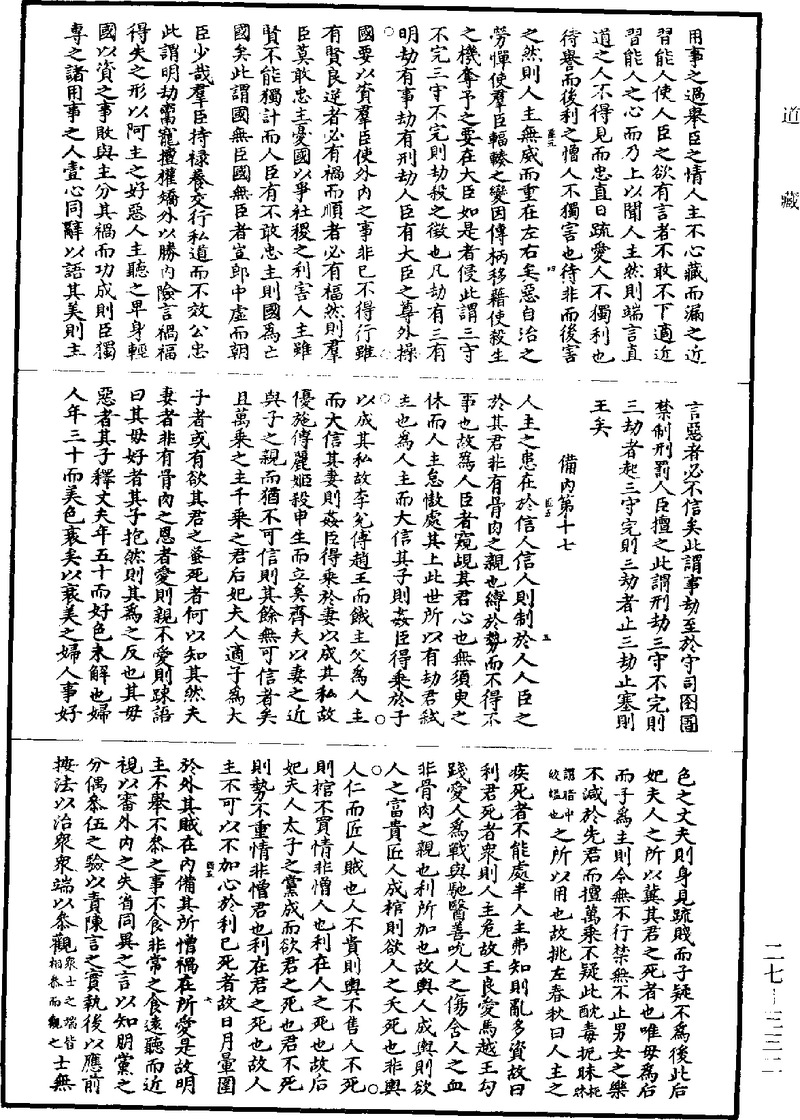 道藏
用事之過舉臣之情人主不心藏而漏之近
習能人使人臣之欲有言者不敢不下適近
習能人之心而乃上以聞人主然則端言直
道之人不得見而忠直日疏愛人不獨利也
待譽而後利之憎人不獨害也待非而後害
之然則人主無威而重在左右矣惡自治之
勞憚使羣臣輻輳之變因傳柄移藉使殺生
之機奪予之要在大臣如是者侵此謂三守
不完三守不完則劫殺之徵也凡劫有三有
明劫有事劫有刑劫人臣有大臣之尊外操
國要以資羣臣使外內之事非己不得行雖
有賢良逆者必有禍而順者必有福然則羣
臣莫敢忠主憂國以爭社稷之利害人主雖
賢不能獨計而人臣有不敢忠主則國為亡
國矣此謂國無臣國無臣者豈郎中虛而朝
臣少哉羣臣持祿養交行私道而不效公忠
此謂明劫鬻寵擅權矯外以勝內險言禍福
得失之形以阿主之好惡人主聽之卑身輕
國以資之事敗與主分其禍而功成則臣獨
專之諸用事之人壹心同辭以語其美則主
言惡者必不信矣此謂事劫至於守司囹圄
禁制刑罰人臣擅之此謂刑劫三守不完則
三劫者起三守完則三劫者止三劫止塞則
王矣
備內第十七
人主之患在於信人信人則制於人人臣之
於其君非有骨肉之親也縛於勢而不得不
事也故為人臣者窺覘其君心也無須臾之
休而人主怠傲處其上此世所以有劫君弒
主也為人主而大信其子則姦臣得乘於子
以成其私故李兌傅趙王而餓主父為人主
而大信其妻則姦臣得乘於妻以成其私故
優施傅麗姬殺申生而立奚齊夫以妻之近
與子之親而猶不可信則其餘無可信者矣
且萬乘之主千乘之君后妃夫人適子為大
子者或有欲其君之蚤死者何以知其然夫
妻者非有骨肉之恩者愛則親不愛則踈語
曰其母好者其子抱然則其為之反也其母
惡者其子釋丈夫年五十而好色未解也婦
人年三十而美色衰矣以衰美之婦人事好
色之丈夫則身見疏賤而子疑不為後此后
妃夫人之所以冀其君之死者也唯母為后
而子為主則令無不行禁無不止男女之樂
不減於先君而擅萬乘不疑此酖毒扼昧
謂暗中絞縊也之所以用也故挑左春秋曰人主之
疾死者不能處半人主弗知則亂多資故曰
利君死者衆則人主危故王良愛馬越王勾
踐愛人為戰與馳醫善吮人之傷含人之血
非骨肉之親也利所加也故輿人成輿則欲
人之富貴匠人成棺則欲人之夭死也非輿
人仁而匠人賊也人不貴則輿不售人不死
則棺不買情非憎人也利在人之死也故后
妃夫人太子之黨成而欲君之死也君不死
則勢不重情非憎君也利在君之死也故人
主不可以不加心於利己死者故日月暈圍
於外其賊在內備其所憎禍在所愛是故明
主不舉不參之事不食非常之食遠聽而近
視以審外內之失省同異之言以知朋黨之
分偶參伍之驗以責陳言之實執後以應前
按法以治衆衆端以參觀衆士之端皆相參而觀之士無
二七—三三二